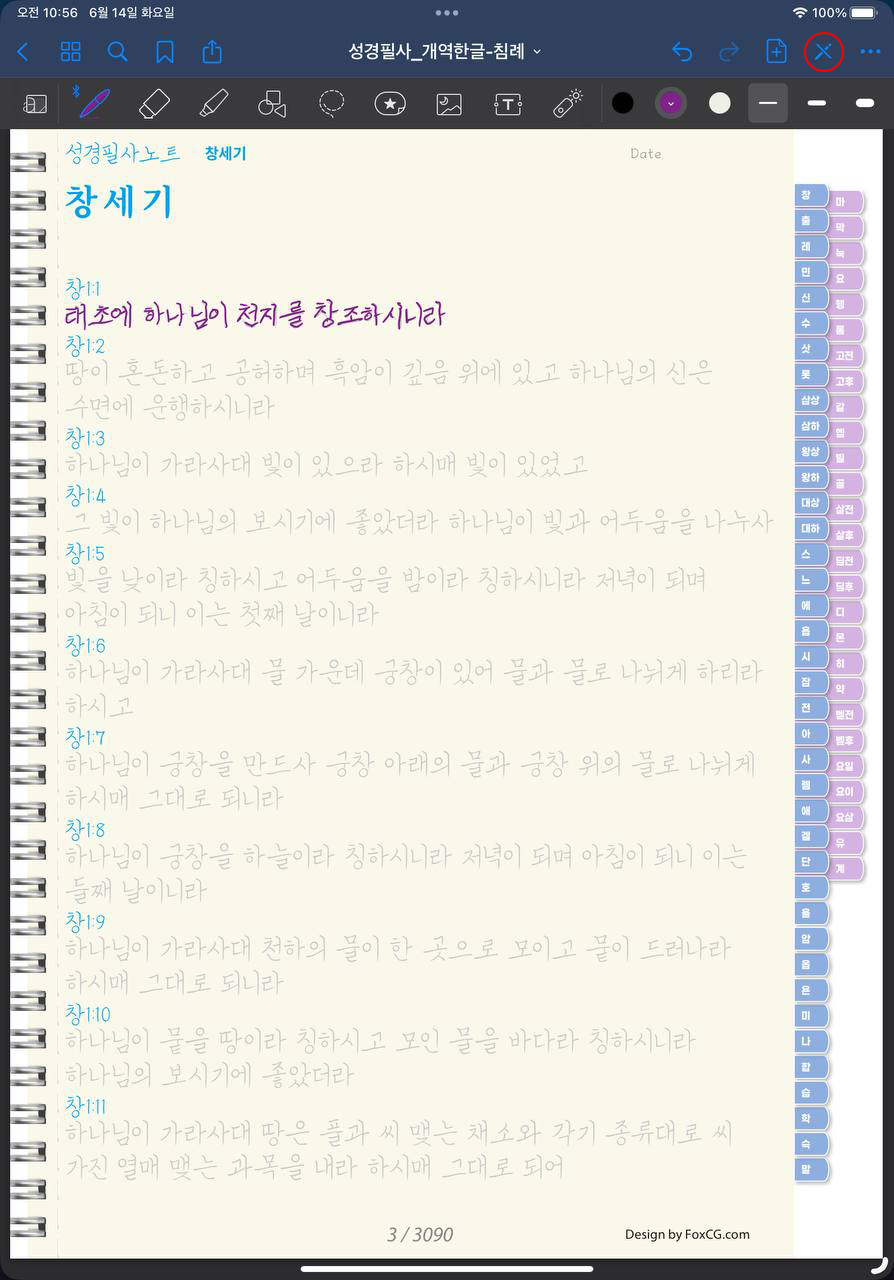 오전 10:56 6월 14일 화요일 100%
성경필사_개역한글-침례
성경필사노트 창세기 Date
창세기
창1:1
태초에 하나님이 천지를 창조하시니라
창1:2
땅이 혼돈하고 공허하며 흑암이 깊음 위에 있고 하나님의 신은
수면에 운행하시니라
창1:3
하나님이 가라사대 빛이 있으라 하시매 빛이 있었고
창1:4
그 빛이 하나님의 보시기에 좋았더라 하나님이 빛과 어두움을 나누사
창1:5
빛을 낮이라 칭하시고 어두움을 밤이라 칭하시니라 저녁이 되며
아침이 되니 이는 첫째 날이니라
창1:6
하나님이 가라사대 물 가운데 궁창이 있어 물과 물로 나뉘게 하리라
하시고
창1:7
하나님이 궁창을 만드사 궁창 아래의 물과 궁창 위의 물로 나뉘게
하시매 그대로 되니라
창1:8
하나님이 궁창을 하늘이라 칭하시니라 저녁이 되며 아침이 되니 이는
둘째 날이니라
창1:9
하나님이 가라사대 천하의 물이 한 곳으로 모이고 뭍이 드러나라
하시매 그대로 되니라
창1:10
하나님이 뭍을 땅이라 칭하시고 모인 물을 바다라 칭하시니라
하나님의 보시기에 좋았더라
창1:11
하나님이 가라사대 땅은 풀과 씨 맺는 채소와 각기 종류대로 씨
가진 열매 맺는 과목을 내라 하시매 그대로 되어
3 / 3090
Design by FoxCG.com
창
출
레
민
신
수
삿
룻
삼상
삼하
왕상
왕하
대상
대하
스
느
에
욥
시
잠
전
아
사
렘
애
겔
단
호
욜
암
옵
욘
미
나
합
습
학
슥
말
마
막
눅
요
행
롬
고전
고후
갈
엡
빌
골
살전
살후
딤전
딤후
디
몬
히
약
벧전
벧후
요일
요이
요삼
유
계